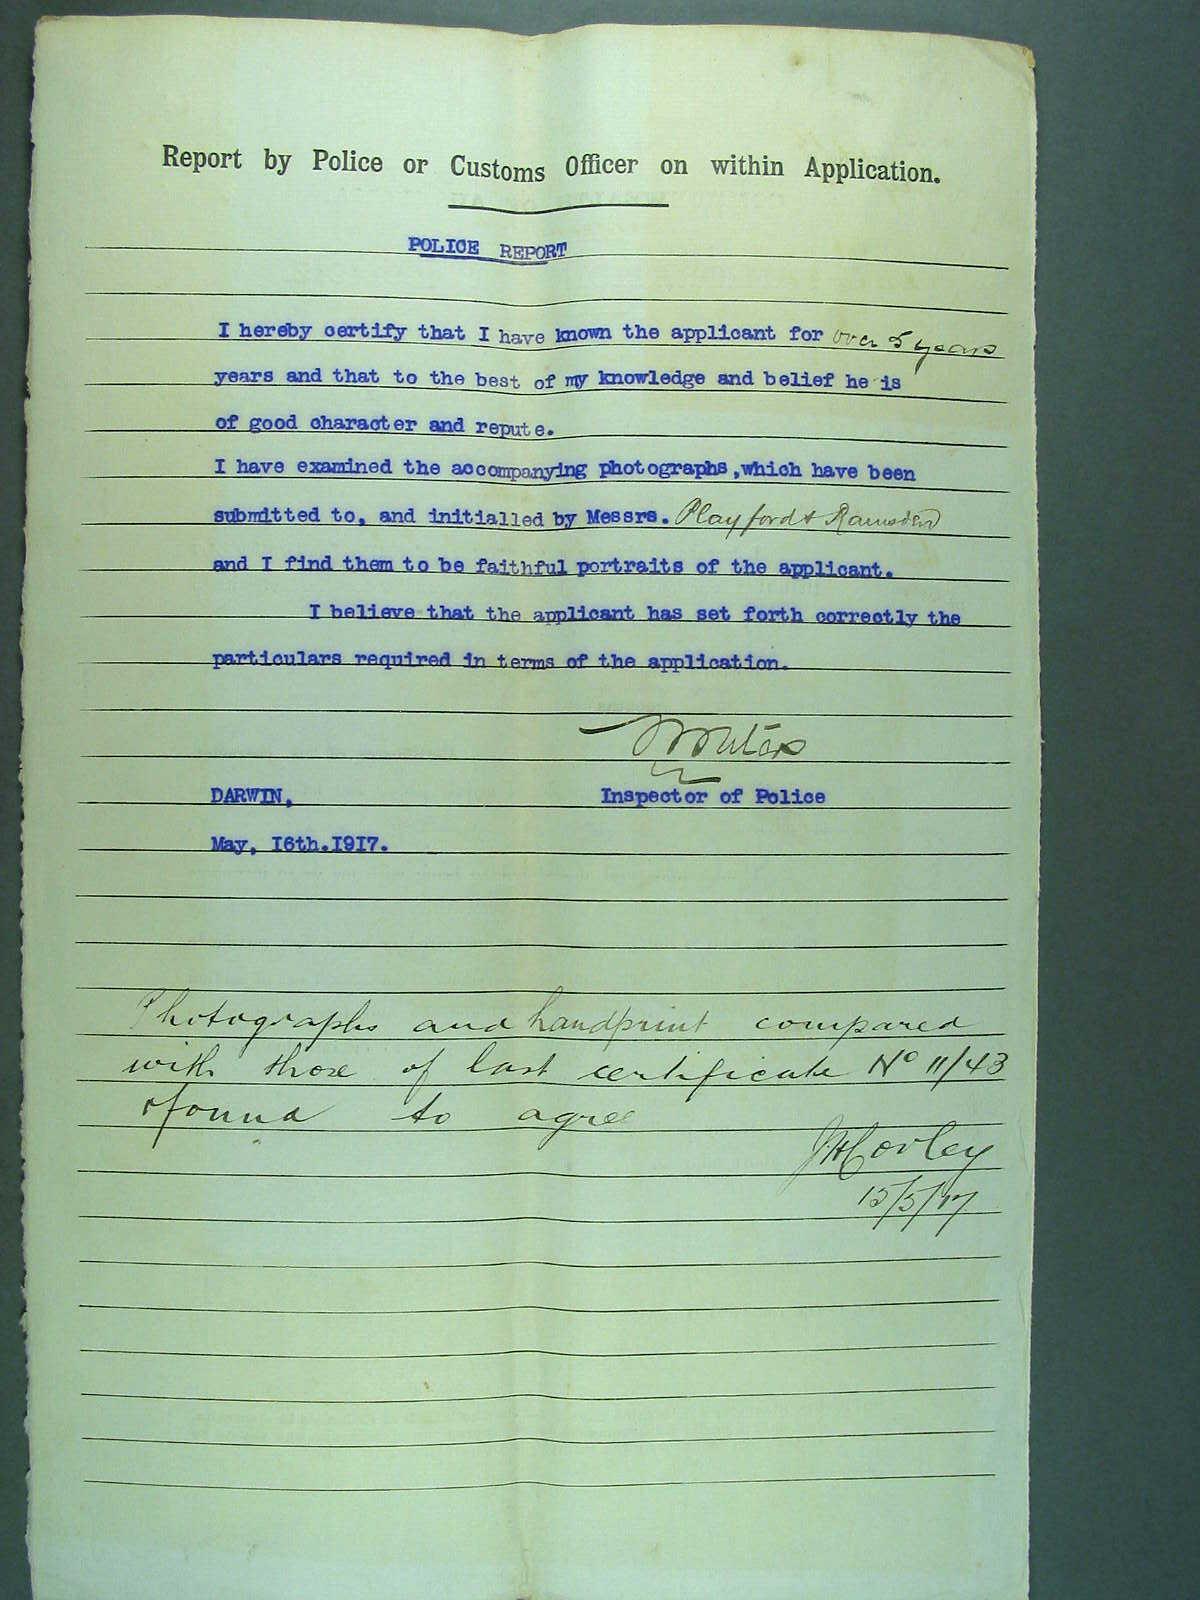 Report by Police or Customs Officer on within Application.
POLICE REPORT
I hereby certify that I have known the applicant for over 5 years
years and that to the best of my knowledge and belief he is
of good character and repute.
I have examined the accompanying photographs,which have been
submitted to, and initialled by Messrs. Playford & Ramsden
and I find them to be faithful portraits of the applicant.
I believe that the applicant has set forth correctly the
particulars required in terms of the application.
DARWIN, Inspector of Police
May, 16th.1917.
Photographs and handprint compared
with those of last certificate No 11/43
& found to agree
JHCorley
15/5/17